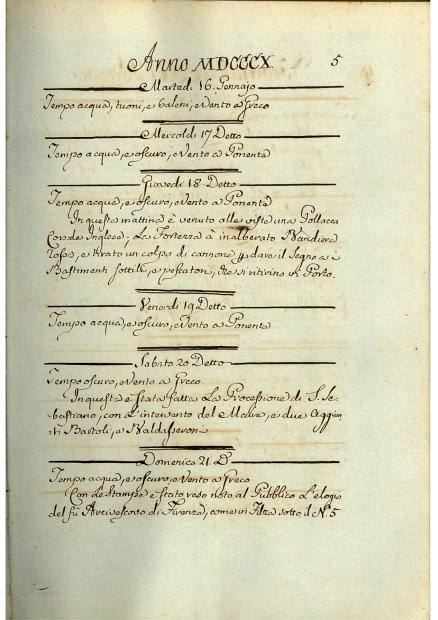 Anno MDCCCX. 5
Martedì 16. Gennajo
Tempo acqua, tuoni, e baleni, e Vento a Greco
Mercoldì 17 Detto
Tempo acqua, e oscuro, e Vento a Ponente
Giovedì 18 Detto
Tempo acqua, e oscuro, e Vento a Ponente
In questa mattina è venuto alle viste una Pollacca
Inglese; La Fortezza à inalberato Bandiera
Rossa, e tirato un colpo di cannone p dare il Segno a i
Bastimenti sottili, e pescatori, che si ritirino in Porto.
Venerdì 19 Detto
Tempo acqua, e oscuro, e Vento a Ponente
Sabato 20 Detto
Tempo oscuro, e Vento a Greco
In questa è stata fatta La Processione di S. Se-
bastiano, con L'intervento del Maire, e due Aggiun
ti Bartoli, e Baldasseroni
Domenica 21. Dº
Tempo acqua, e oscuro, e Vento a Greco
Con Le Stampe è stato reso noto al Pubblico L'elogio
del fù Arcivescovo di Firenze, come in Filza sotto il Nº 5